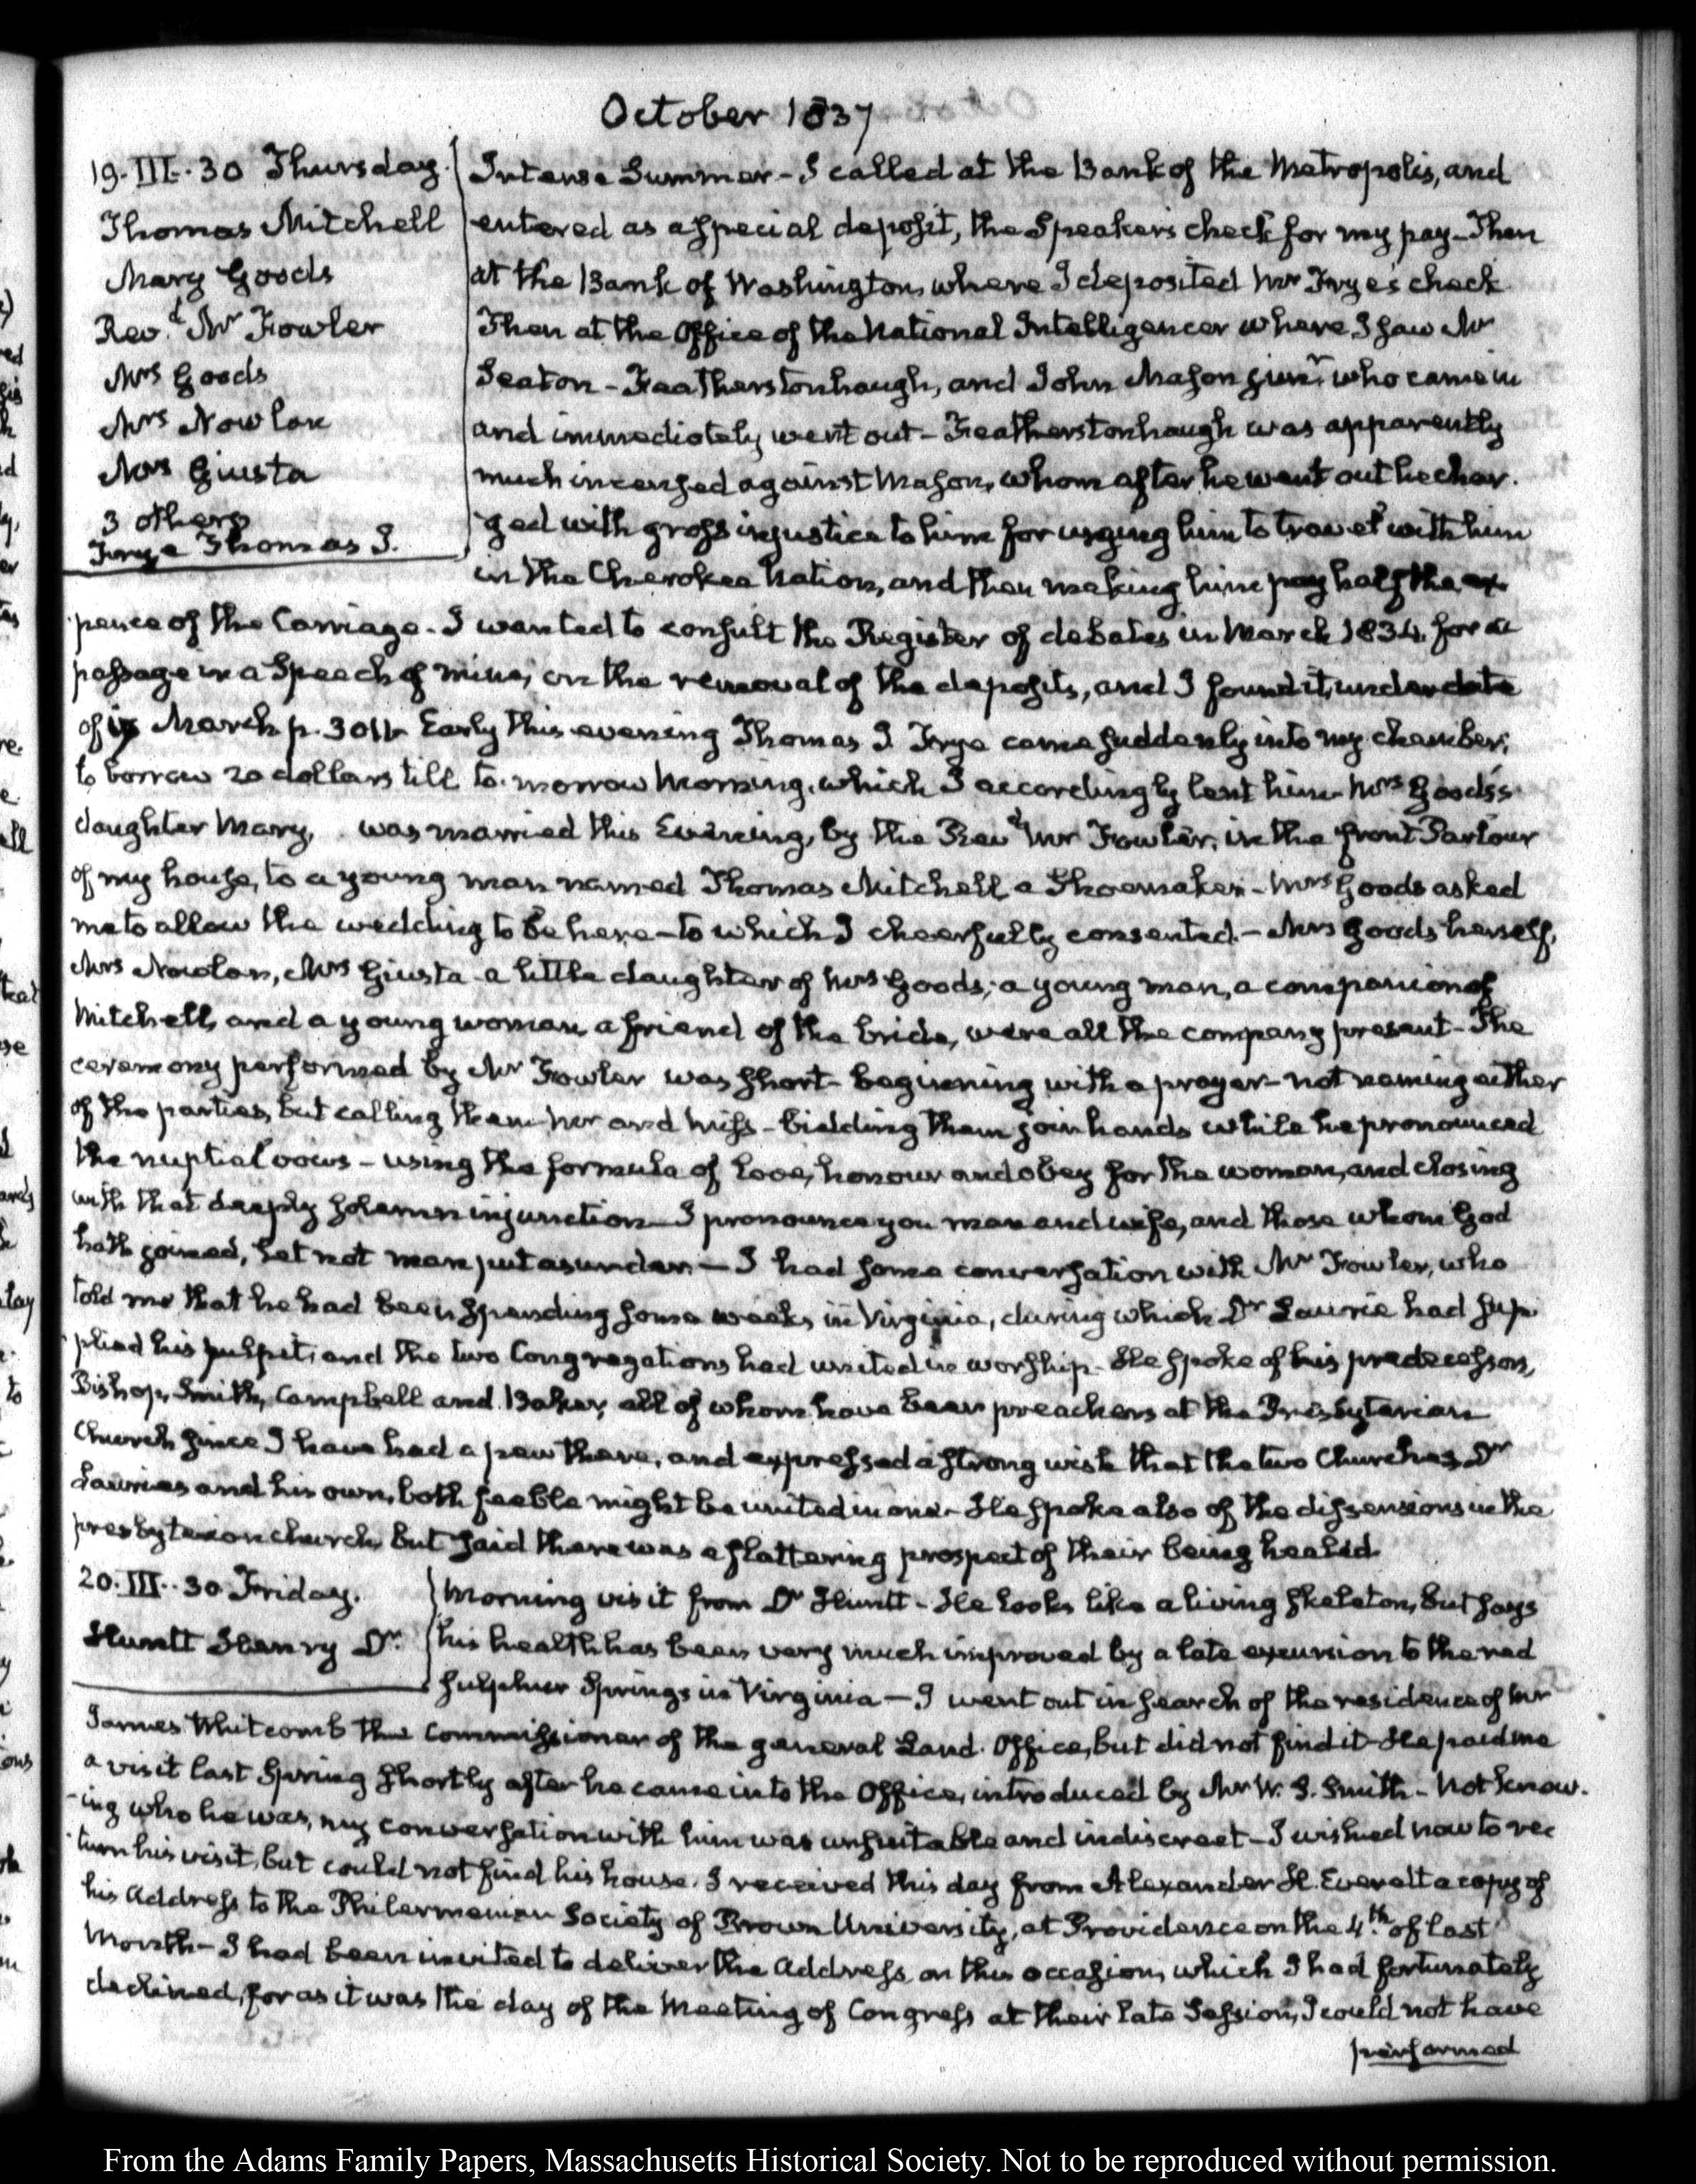 October 1837
19. III. 30 Thursday.
Thomas Mitchell
Mary Goods
Revd. Mr Fowler
Mrs Goods
Mrs Nowlan
Mrs Giusta
3 others
Frye Thomas J.
Intense Summer - I called at the Bank of the Metropolis, and
entered as a special deposit, the Speaker's check for my pay - Then
at the Bank of Washington, where I deposited Mr Frye's check
Then at the Office of the National Intelligencer where I saw Mr
Seaton - Featherstonhaugh, and John Mason junr. who came in
and immediately went out - Featherstonhaugh was apparently
much incensed against Mason, whom after he went out he char-
-ged with gross injustice to him for urging him to travel with him
in the Cherokee Nation, and then making him pay half the ex-
-pence of the Carriage - I wanted to consult the Register of debates in March 1834. for a
passage in a Speech of mine, on the removal of the deposits, and I found it, under date
of March p. Early this evening Thomas J. Frye came suddenly into my chamber,
to borrow 20 dollars till to-morrow Morning, which I accordingly lent him - Mrs Goods's
daughter Mary, was married this Evening, by the Revd. Mr Fowler, in the front Parlour
of my house, to a young man named Thomas Mitchell a Shoemaker - Mrs Goods asked
me to allow the wedding to be here - to which I cheerfully consented. - Mrs Goods herself,
Mrs Nowlan, Mrs Giusta a little daughter of Mrs Goods; a young man, a companion of
Mitchell, and a young woman, a friend of the bride, were all the company present - The
ceremony performed by Mr Fowler was short - beginning with a prayer - not naming either
of the parties, but calling them Mr and Miss - bidding them join hands while he pronounced
the nuptial vows - using the formula of love, honour and obey for the woman, and closing
with that deeply solemn injunction - I pronounce you man and wife, and those whom God
hath joined, let not man put asunder. - I had some conversation with Mr Fowler, who
told me that he had been spending some weeks in Virginia, during which Dr Laurie had sup-
-plied his pulpit, and the two Congregations had united in worship - He spoke of his predecessors,
Bishop, Smith, Campbell and Baker, all of whom have been preachers at the Presbyterian
Church since I have had a pew there, and expressed a strong wish that the two Churches Dr
Lauries and his own, both feeble might be united in one - He spoke also of the dissensions in the
presbyterian church, but said there was a flattering prospect of their being healed.
20. III. 30 Friday.
Huntt Henry Dr.
Morning visit from Dr Huntt - He looks like a living skeleton, but says
his health has been very much improved by a late excursion to the red
sulphur Springs in Virginia - I went out in search of the residence of Mr
James Whitcomb the Commissioner of the general Land Office, but did not find it - He paid me
a visit last Spring shortly after he came into the Office, introduced by Mr W. S. Smith - Not know-
-ing who he was, my conversation with him was unsuitable and indiscreet - I wished now to re-
-turn his visit, but could not find his house. I received this day from Alexander H. Everett a copy of
his Address to the Philermenian Society of Brown University, at Providence on the 4th. of last
Month - I had been invited to deliver the Address on this occasion, which I had fortunately
declined, for as it was the day of the Meeting of Congress at their late Session, I could not have
performed
From the Adams Family Papers, Massachusetts Historical Society. Not to be reproduced without permission.